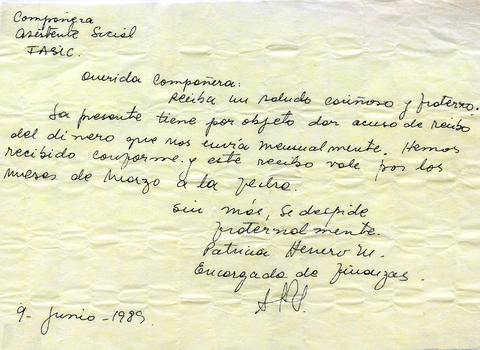 Compañera
Asistente Social
FASIC.
Querida Compañera:
Reciba un saludo cariñoso y fraterno.
La presente tiene por objeto dar acuso de recibo
del dinero que nos envía mensualmente. Hemos
recibido conforme y este recibo vale por los
meses de Marzo a la fecha.
Sin más, se despide
fraternalmente.
Patricia Herrera M.
Encargada de finanzas.
9 - Junio - 1989.